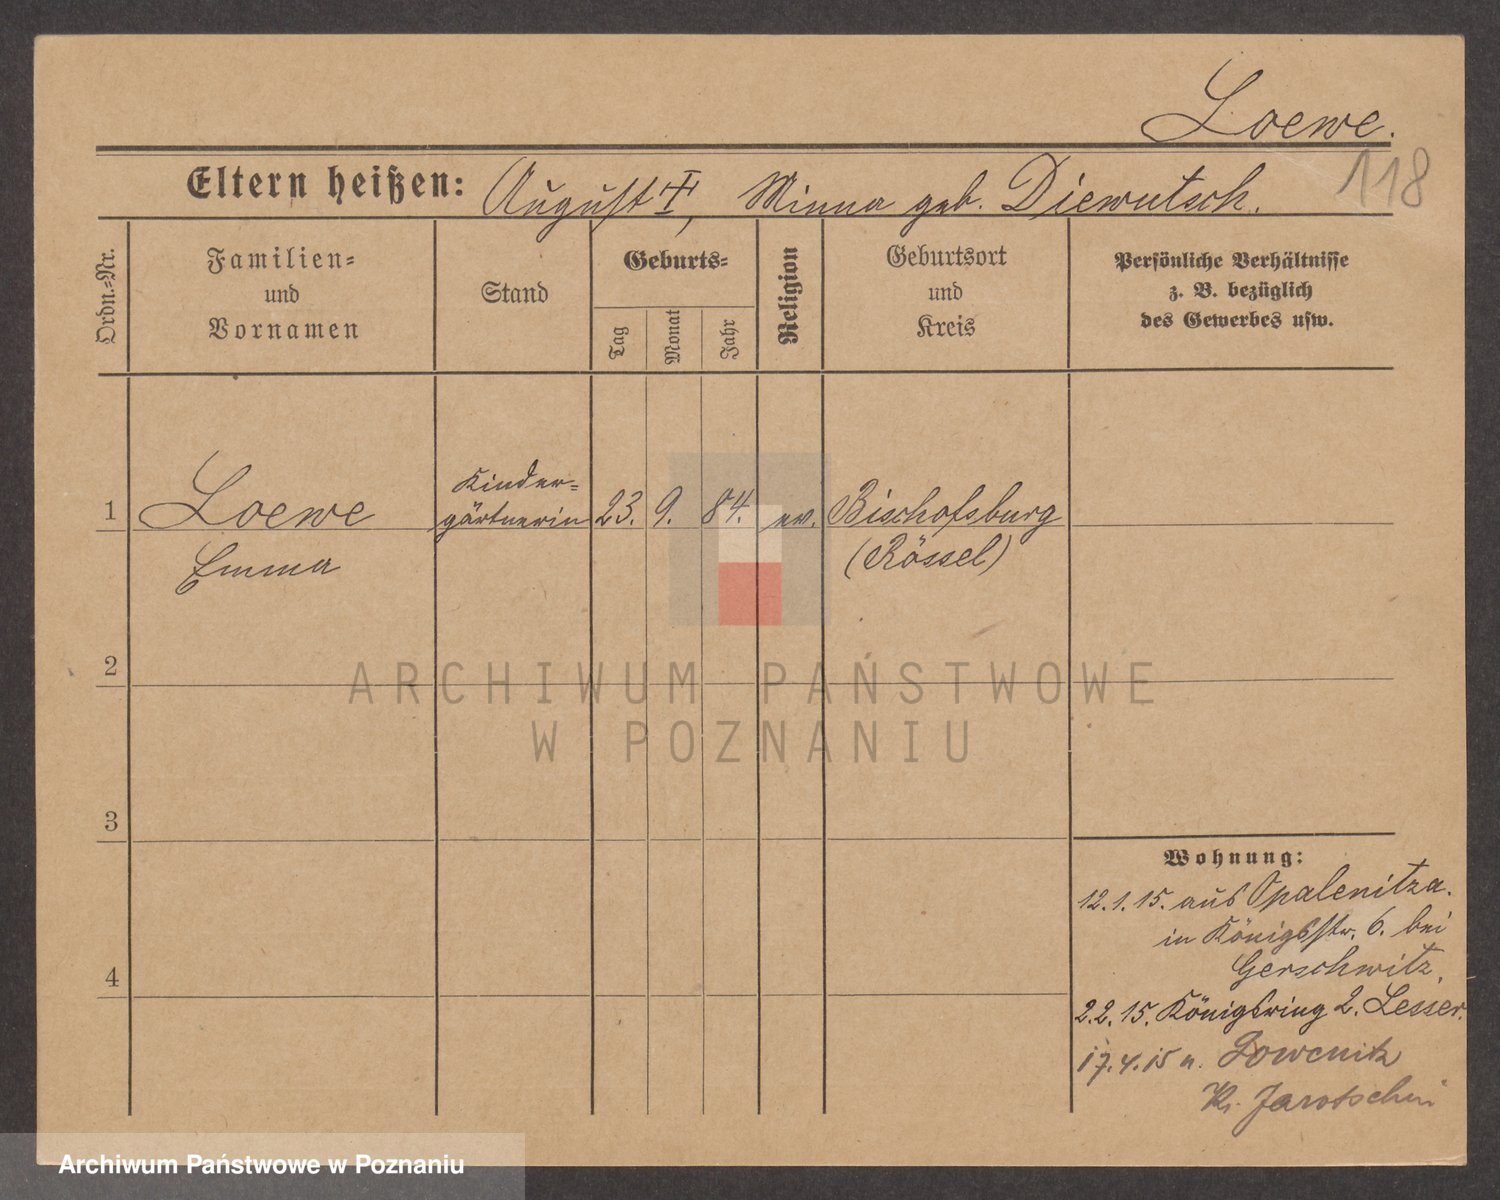 Loewe.
118
Eltern heißen: August †, Minna geb. Diewutsch.
Ordn.-Nr.
Familien-
und
Vornamen
Stand
Geburts-
Tag
Monat
Jahr
Religion
Geburtsort
und
Kreis
Persönliche Verhältnisse
z. B. bezüglich
des Gewerbes usw.
1
Loewe
Emma
Kinder-
gärtnerin
23. 9. 84. ev.
Bischofsburg
(Rössel)
2
3
4
Wohnung:
12.1.15. aus Opalenitza.
in Königsstr. 6. bei
Gerschwitz.
2.2.15. Königsring 2. Lesser.
17.4.15 n.
Kr. Jarotschin
ARCHIWUM PAŃSTWOWE
W POZNANIU
Archiwum Państwowe w Poznaniu